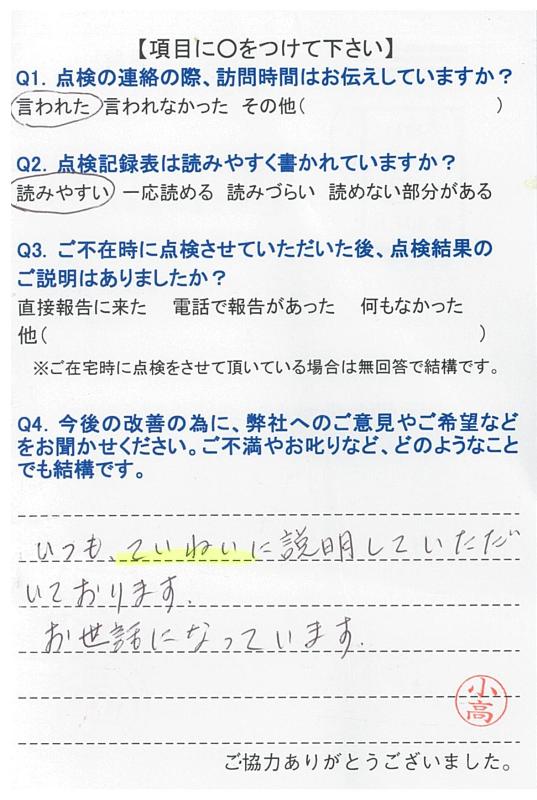 【項目に〇をつけて下さい】
Q1. 点検の連絡の際、訪問時間はお伝えしていますか？
言われた 言われなかった その他(　　　　　　　　　)
Q2. 点検記録表は読みやすく書かれていますか？
読みやすい 一応読める 読みづらい 読めない部分がある
Q3. ご不在時に点検させていただいた後、点検結果の
ご説明はありましたか？
直接報告に来た 電話で報告があった 何もなかった
他(　　　　　　　　　　　　　　　　　　　　)
※ご在宅時に点検をさせて頂いている場合は無回答で結構です。
Q4. 今後の改善の為に、弊社へのご意見やご希望など
をお聞かせください。ご不満やお叱りなど、どのようなこと
でも結構です。
いつも、ていねいに説明していただ
いております.
お世話になっています.
小高
ご協力ありがとうございました。